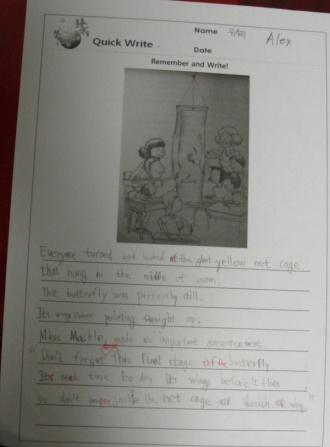 Quick Write
Name Alex
Date
Remember and Write!
Everyone turned and looked at the giant yellow net cage
that hung in the middle of room.
The butterfly was perfectly still.
Its wings were pointing straight up.
Miss Mackle made an important announcement
"Don't forget this final stage of the butterfly
Its time to dry its wings before it flies
so don't inside the net cage or touch